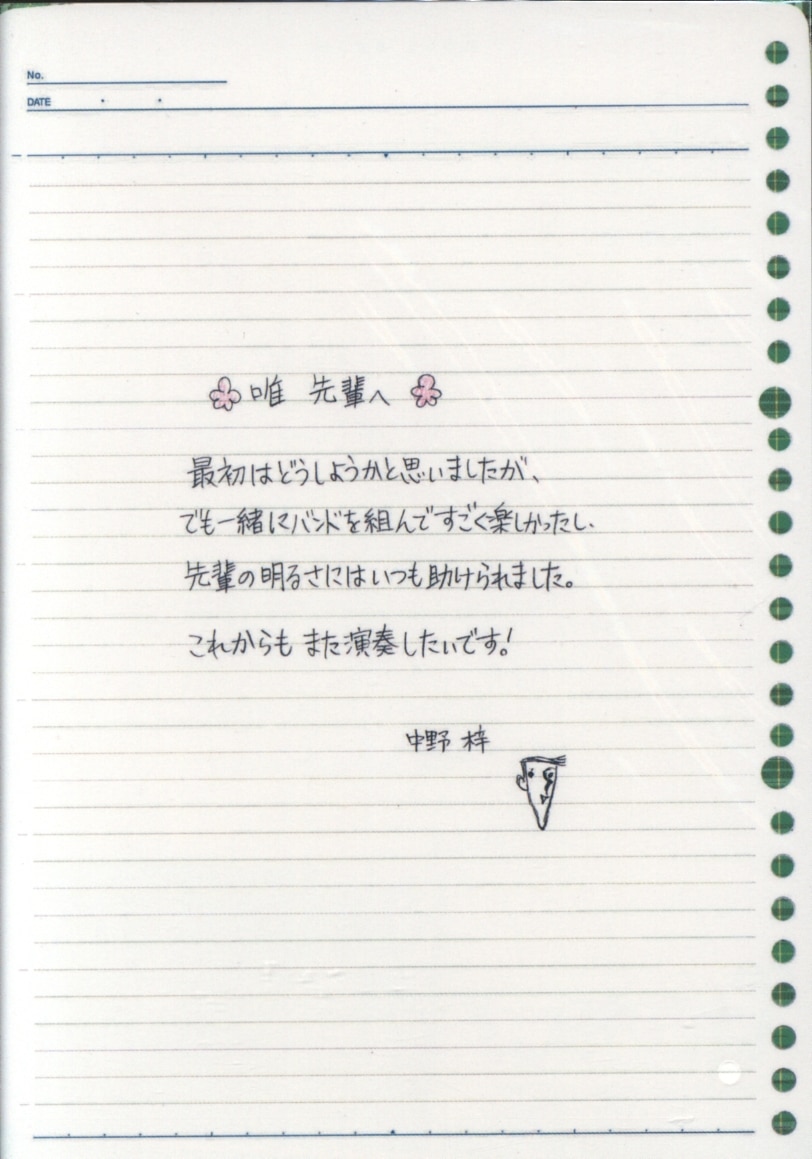 No.
DATE
唯 先輩へ
最初はどうしようかと思いましたが、
でも一緒にバンドを組んですごく楽しかったし、
先輩の明るさにはいつも助けられました。
これからも また演奏したいです!
中野 梓